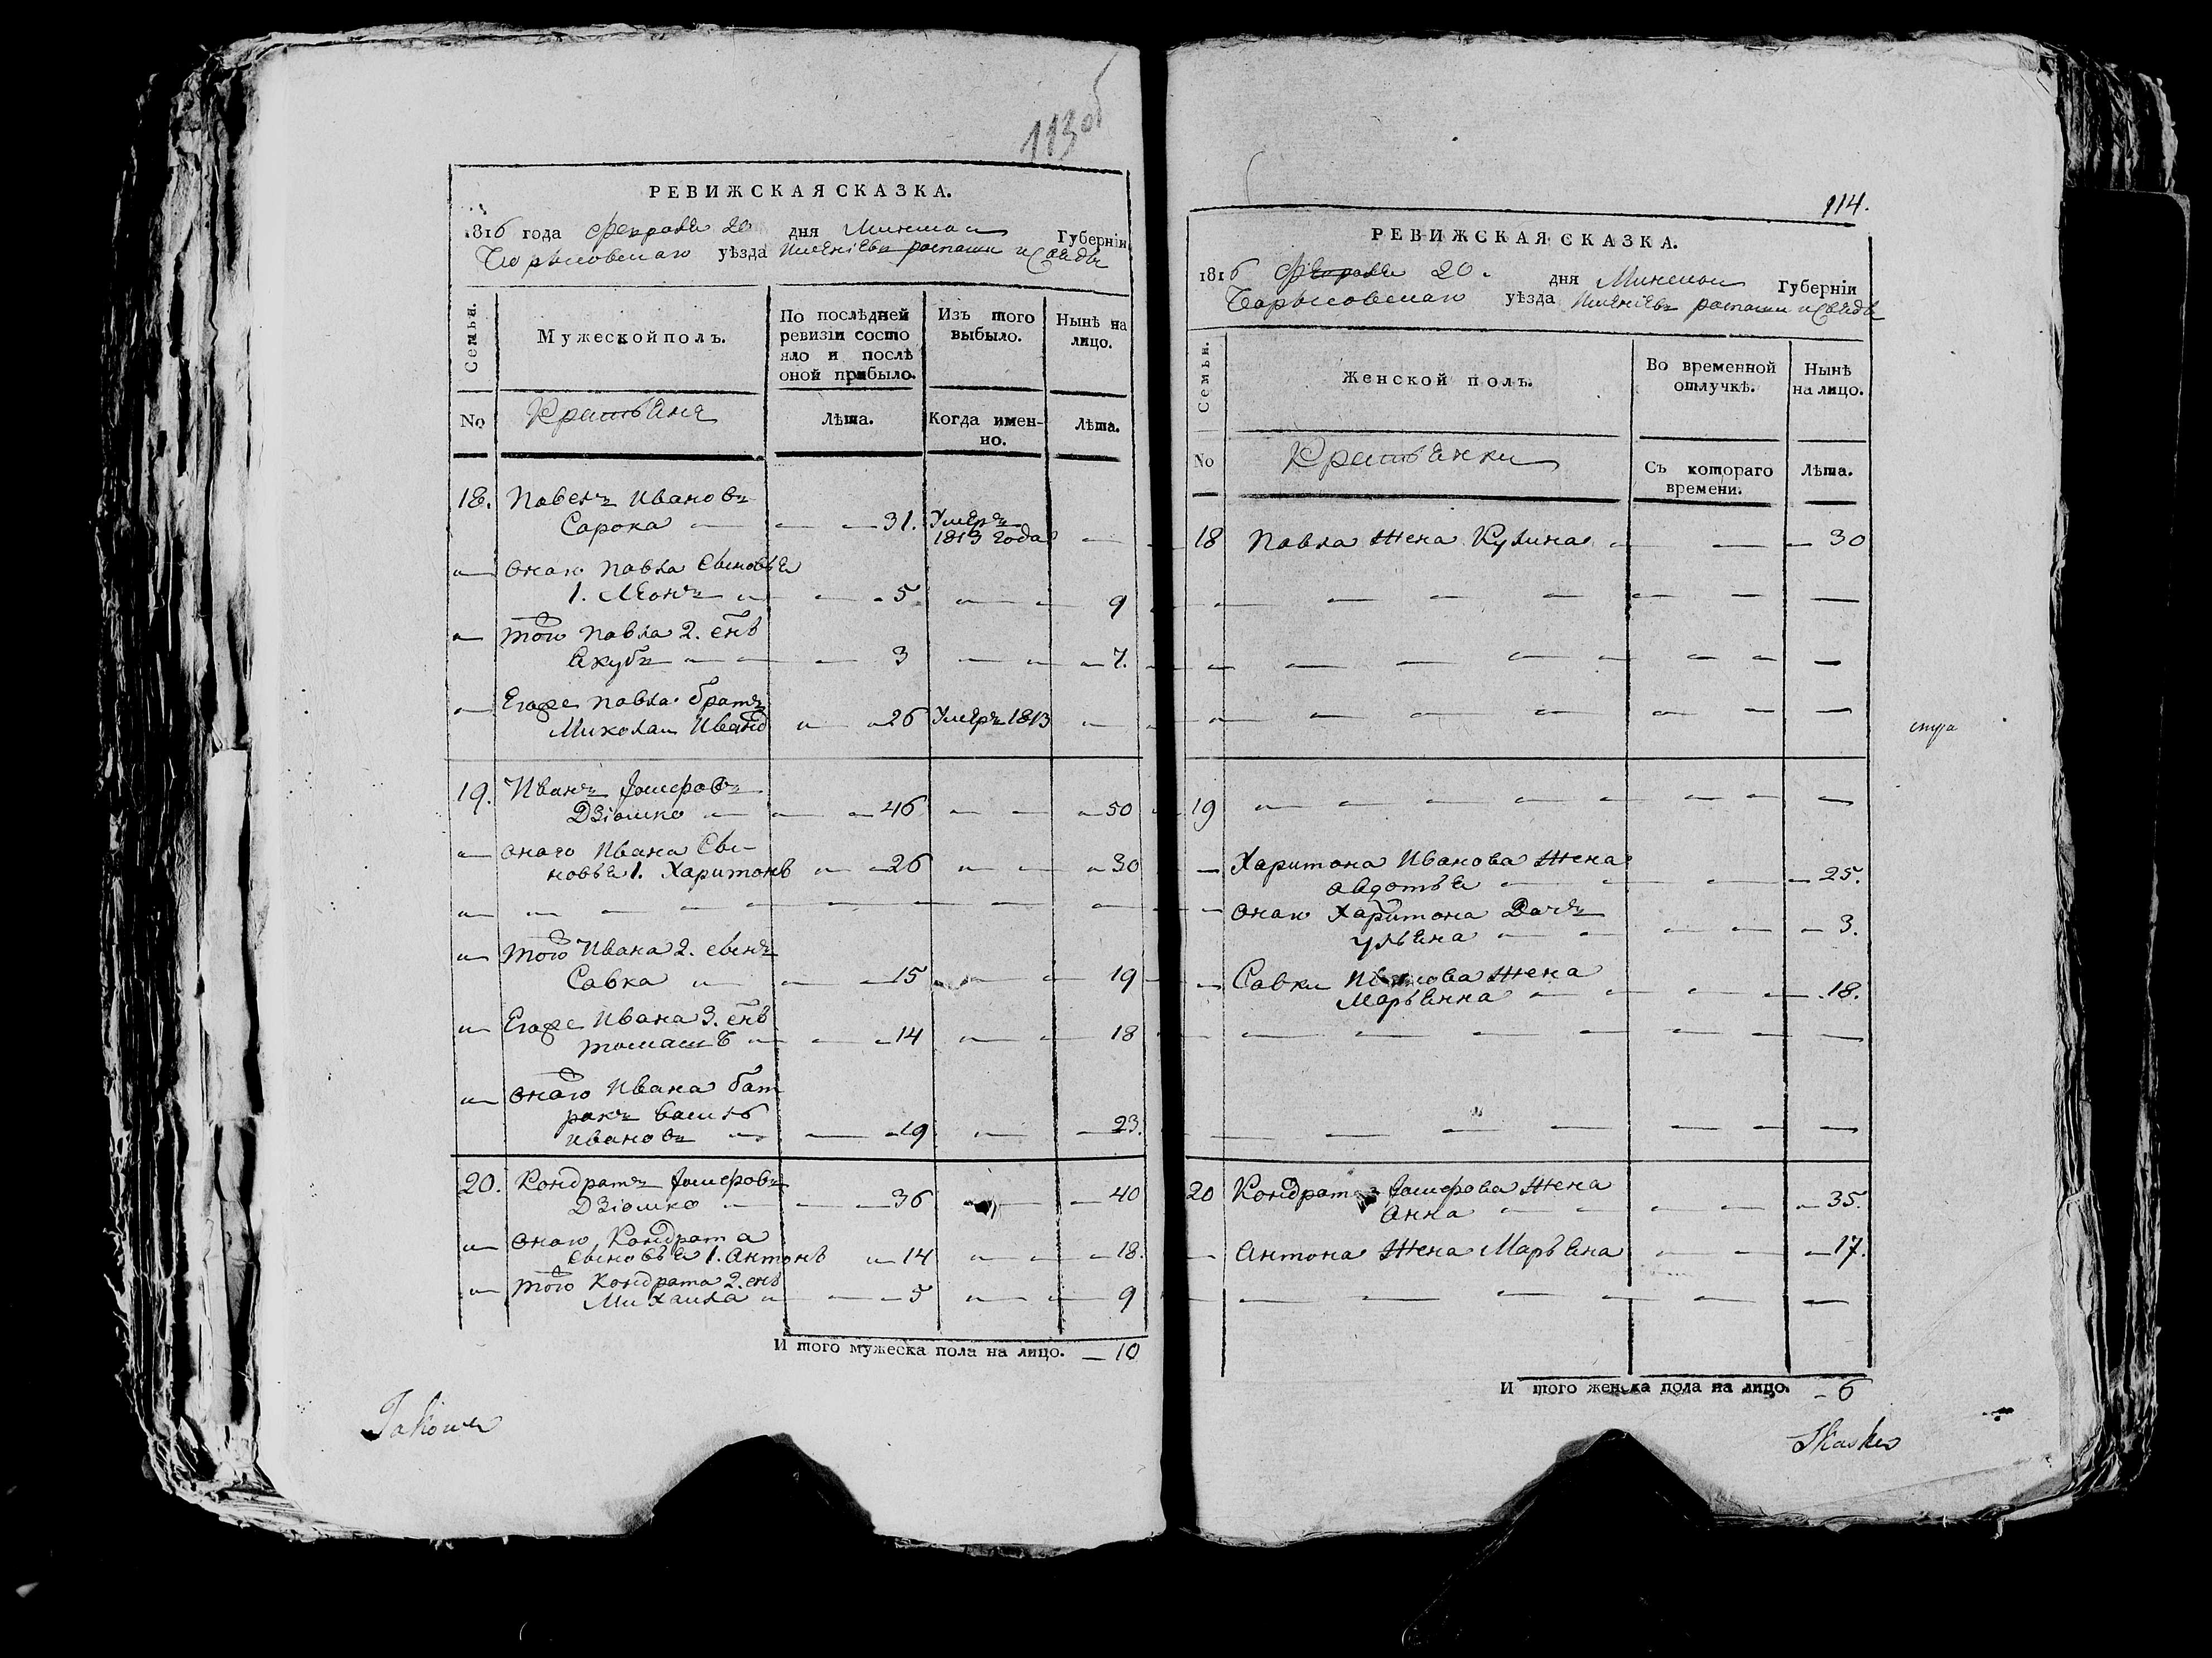 113об
РЕВИЖСКАЯ СКАЗКА.
1816 года февраля 20 дня Минской Губерніи
Борысовскаго уѣзда имѣнієвъ
Семьи.
Мужеской полъ.
По послѣдней
ревизіи состо
яло и послѣ
оной прибыло.
Изъ того
выбыло.
Нынѣ на
лицо.
No
Крестьяне
Лѣта.
Когда имен-
но.
Лѣта.
18. Павелъ Ивановъ
Сорока — — — 31. Умеръ
1813 года —
— оного Павла сыновья
1. Леонъ — — 5 — — 9
— того Павла 2. снъ
Якубъ — — — 3 — — 7.
— Егоже Павла братъ
Миколай Иванов — — 26 Умеръ 1813 —
19. Иванъ Іосифовъ
Дзіомко — — — 46 — — 50
— оного Ивана сы-
новья 1. Харитонъ — — 26 — — 30
— — — — — — — — —
— того Ивана 2. сынъ
Савка — — — 15 — — 19
— Егоже Ивана 3. снъ
Томашъ — — — 14 — — 18
— оного Ивана бат
ракъ Василь
Ивановъ — — — 19 — — 23.
20. Кондратъ Іосифовъ
Дзіомко — — — 36 — — 40
— оного Кондрата
сыновья 1. Антонъ — 14 — — 18.
— того Кондрата 2. снъ
Михайла — — — 5 — — 9
И того мужеска пола на лицо. — 10
114.
РЕВИЖСКАЯ СКАЗКА.
1816 февраля 20. дня Минской Губерніи
Борысовскаго уѣзда имѣнієвъ
Семьи.
Женской полъ.
Во временной
отлучкѣ.
Нынѣ
на лицо.
No
Крестьянки
Съ котораго
времени.
Лѣта.
18 Павла жена Кулина — — — 30
— — — — — — —
— — — — — — —
— — — — — — —
19 — — — — — — —
— Харитона Иванова жена
Авдотья — — — — 25.
— оного Харитона дочъ
Ульяна — — — — 3.
— Савки Иванова жена
Марьянна — — — — 18.
— — — — — — —
— — — — — — —
20 Кондрата Іосифова жена
Анна — — — — 35.
— Антона жена Марьяна — — — 17.
— — — — — — —
И того женска пола на лицо. — 6